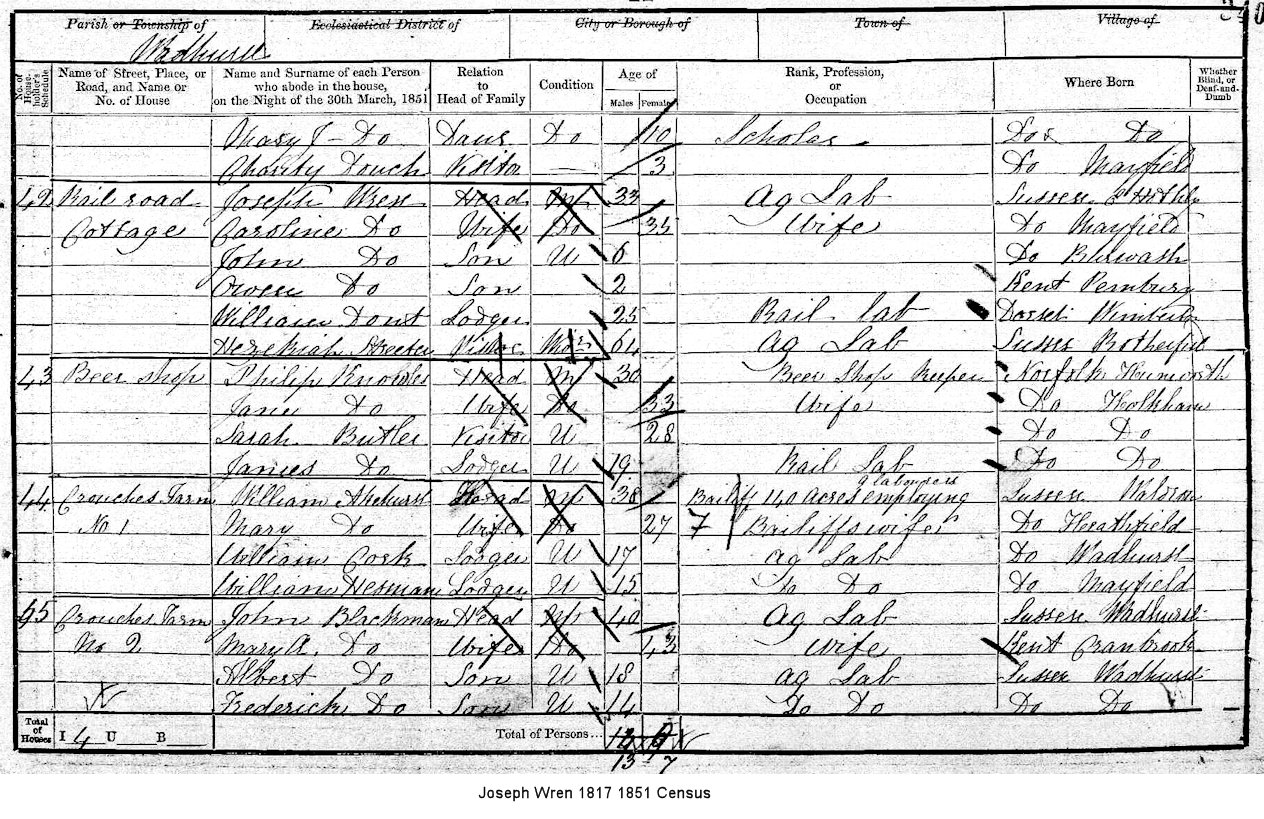 Parish or Township of Ecclesiastical District of City or Borough of Town of Village of
Wadhurst
No. of House-holder's Schedule Name of Street, Place, or Road, and Name or No. of House Name and Surname of each Person who abode in the house, on the Night of the 30th March, 1851 Relation to Head of Family Condition Age of Males Females Rank, Profession, or Occupation Where Born Whether Blind, or Deaf-and-Dumb
Mary J Do Daur Do 10 Scholar Do Do
Charity Douch Visitor 3 Do Mayfield
42 Rail road Joseph Wren Head M 33 Ag Lab Sussex
Cottage Caroline Do Wife Do 35 Wife Do Mayfield
John Do Son U 6 Do Burwash
Owen Do Son 2 Kent Pembury
William Dout Lodger 25 Rail lab Dorset
Hezekiah Streeter Visitor 64 Ag Lab Sussex Rotherfield
43 Beer shop Philip Knowles Head M 30 Beer Shop Keeper Norfolk
Jane Do Wife Do 33 Wife Do Holkham
Sarah Butler Visitor U 28 Do Do
James Do Lodger U 19 Rail Lab Do Do
44 Crouches Farm William Akehurst Head M 38 Bailiff 140 acres employing labourers Sussex Waldron
No 1 Mary Do Wife Do 27 7 Bailiffs wife Do Heathfield
William Cork Lodger U 17 Ag Lab Do Wadhurst
William Herman Lodger U 15 Do Do Do Mayfield
45 Crouches Farm John Blackman Head M 40 Ag Lab Sussex Wadhurst
No 2 Mary A. Do Wife Do 43 Wife Kent Cranbrook
Albert Do Son U 18 Ag Lab Sussex Wadhurst
Frederick Do Son U 14 Do Do Do Do
Total of Houses I 4 U B Total of Persons...
13 7
Joseph Wren 1817 1851 Census